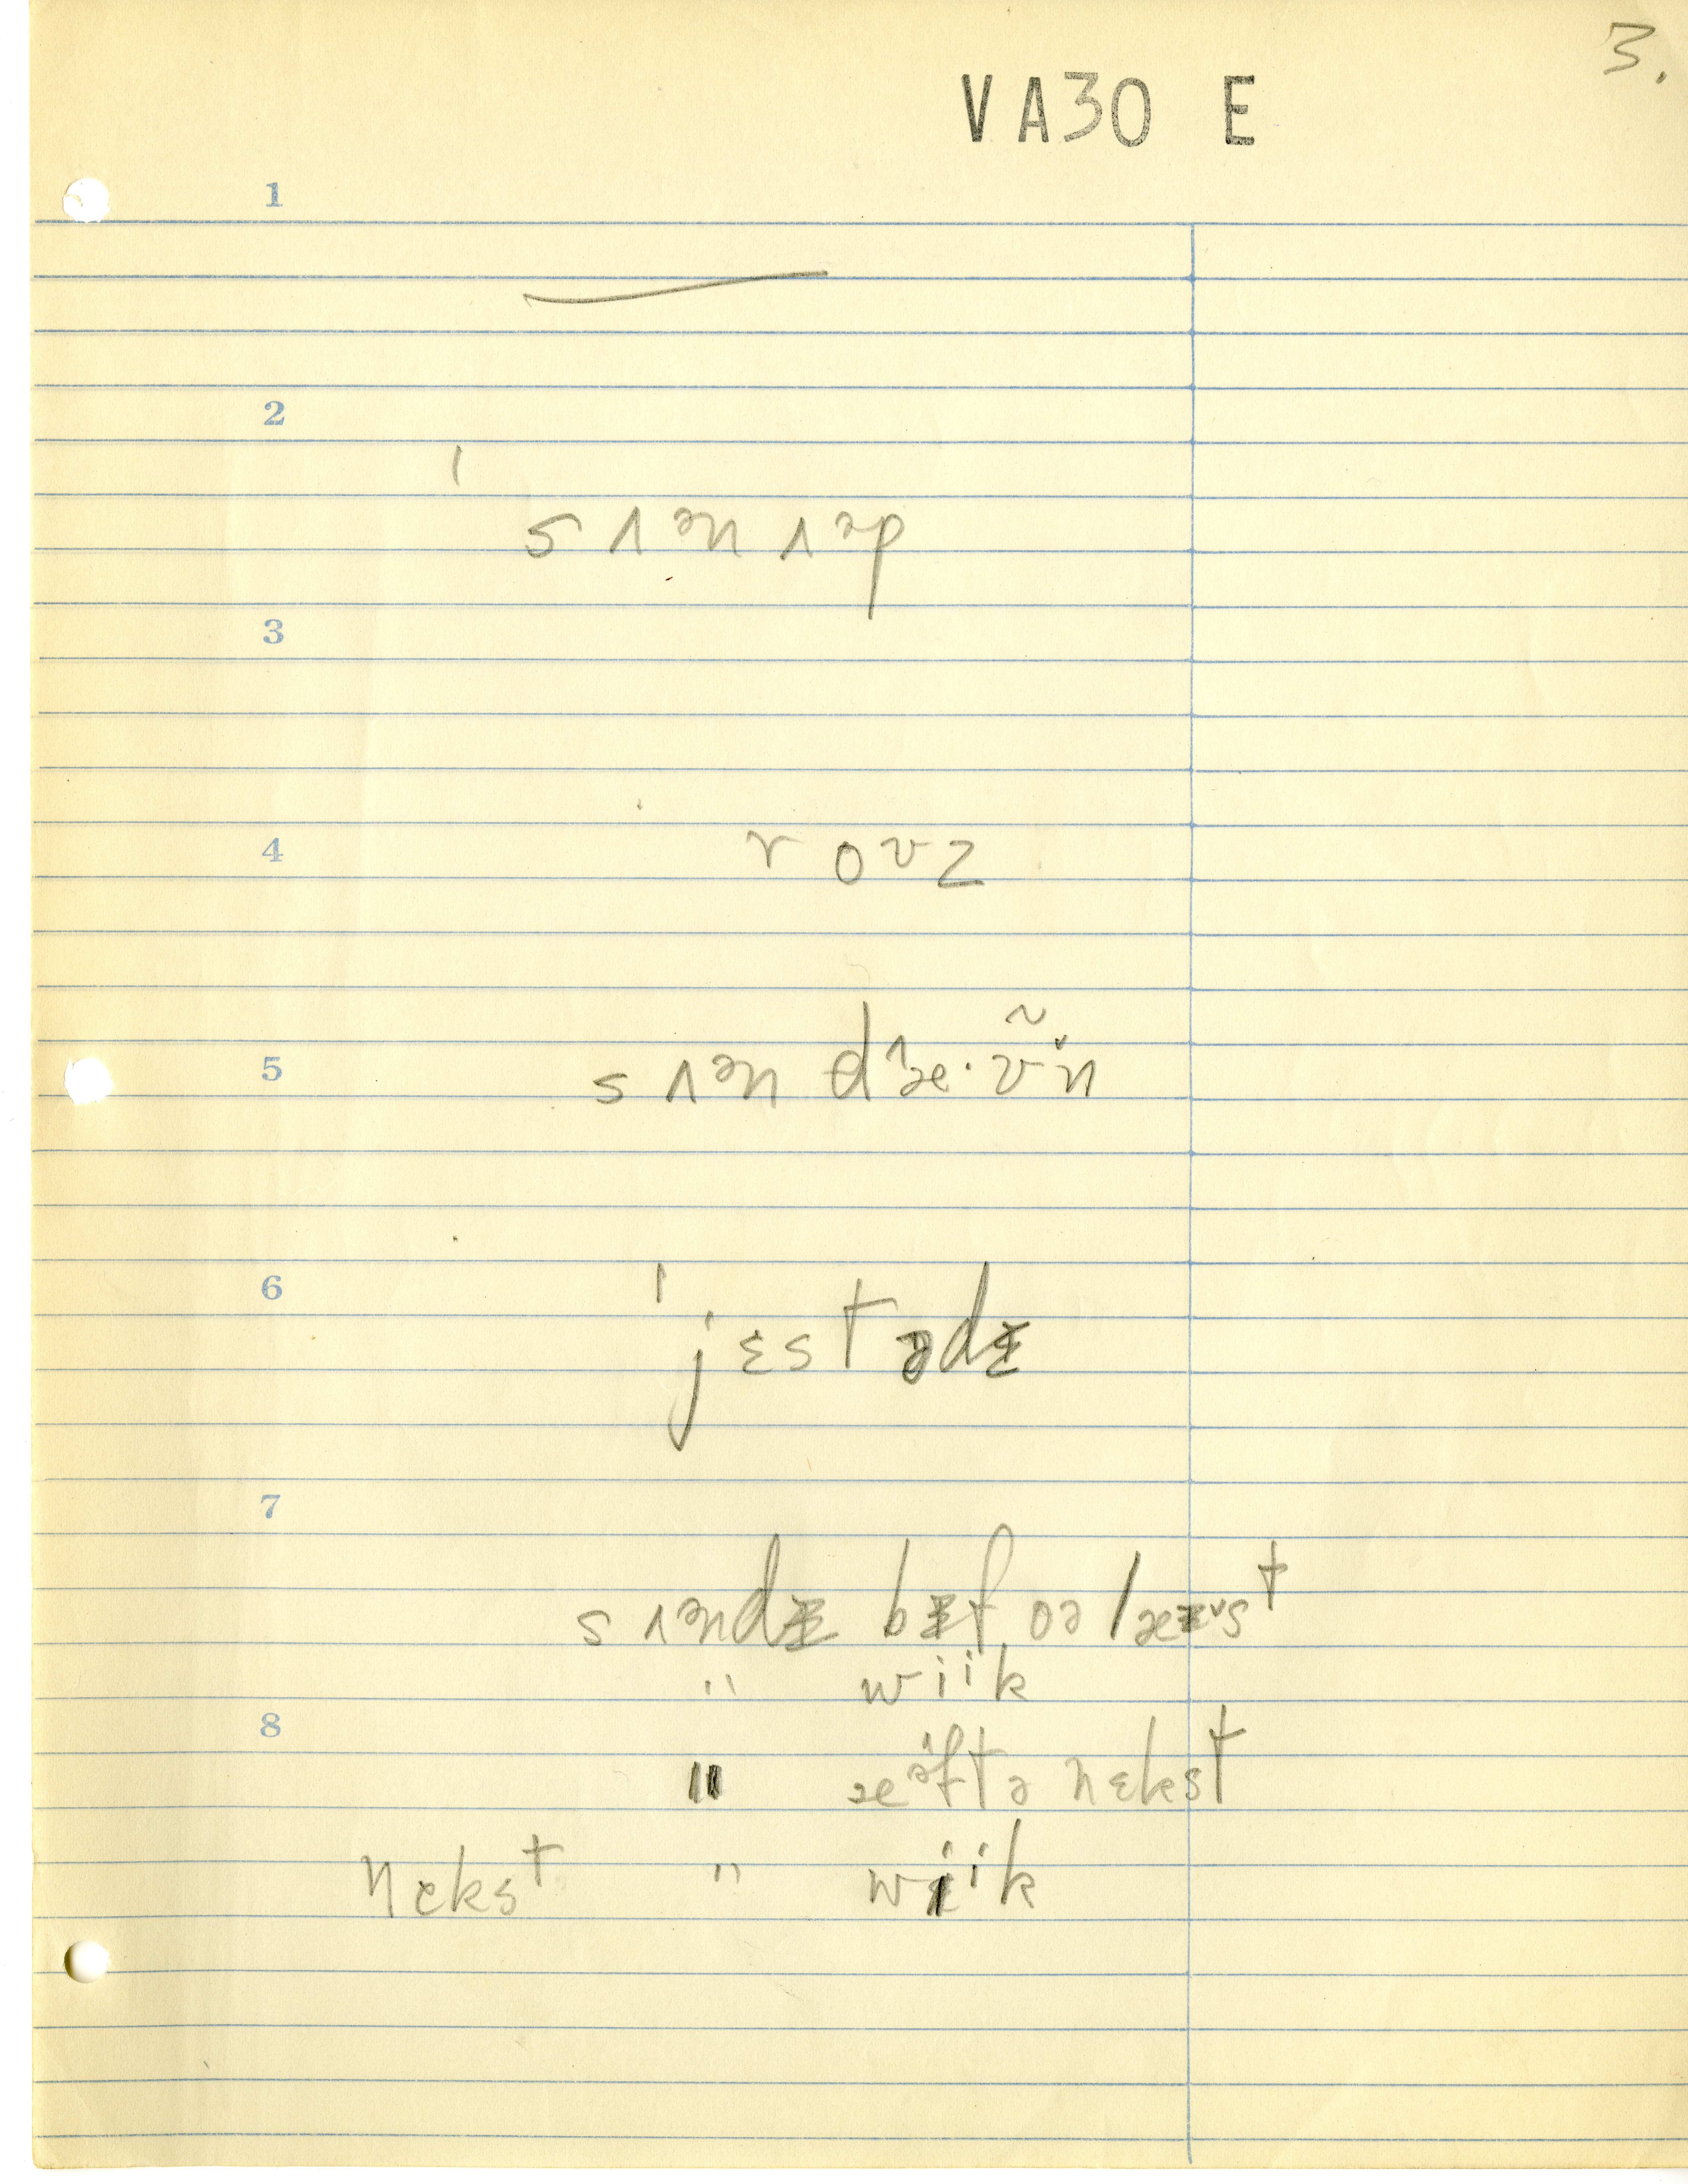 3.
VA30 E
1
2
ˈsʌᵊnʌᵊp
3
4
roʊz
5
sʌᵊn dæ·ʊ̃n
6
ˈjɛstədɪ
7
sʌᵊndɪ bɪfoə læst
" wiik
8
" æftə nɛkst
nɛkst " wiik